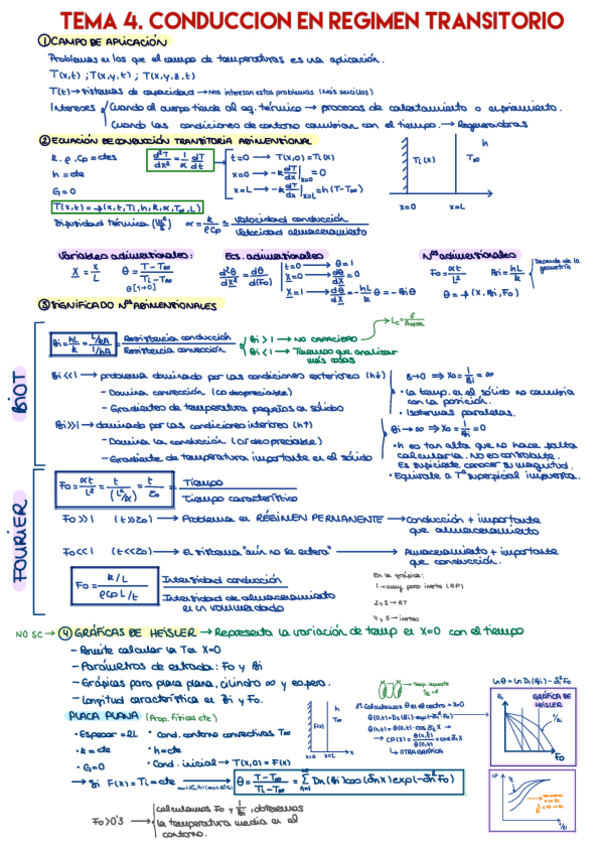 TEMA 4. CONDUCCION EN REGIMEN TRANSITORIO
① CAMPO DE APLICACIÓN
Problemas en los que el campo de temperaturas es una aplicación.
T(x,t) ; T(x,y,t) ; T(x,y,z,t)
T(t) → sistemas de capacidad → Nos interesan estos problemas (Más sencillos)
Intereses Cuando el cuerpo tiende al eq. térmico → procesos de calentamiento o enfriamiento.
Cuando las condiciones de contorno cambian con el tiempo. → Regeneradores
② ECUACIÓN DE CONDUCCIÓN TRANSITORIA ADIMENSIONAL
k, ρ, Cp = ctes
h = cte
G = 0
d²T/dx² = 1/α dT/dt
t=0 → T(x,0) = Ti(x)
x=0 → -k dT/dx|x=0 = 0
x=L → -k dT/dx|x=L = h(T-T∞)
h
Ti(x) T∞
x=0 x=L
T(x,t) = f(x,t,Ti,h,k,α,T∞,L)
Difusividad térmica α = k/ρCp = Velocidad conducción / Velocidad almacenamiento
Variables adimensionales: Ecs. adimensionales Nºs adimensionales
X = x/L θ = T-T∞/Ti-T∞
θ[1→0]
d²θ/dX² = dθ/d(Fo)
t=0 → θ=1
X=0 → dθ/dX = 0
X=1 → dθ/dX = -hL/k θ = -Bi θ
Fo = αt/L² Bi = hL/k
Depende de la geometría
θ = f(X, Bi, Fo)
③ SIGNIFICADO Nºs ADIMENSIONALES
BIOT
Bi = hL/k = L/kA / 1/hA = Resistencia conducción / Resistencia convección
Bi > 1 → NO CAPACIDAD
Bi < 1 → Tenemos que analizar más cosas
Bi<<1 → problema dominado por las condiciones exteriores (h↓)
- Domina convección (CD despreciable)
- Gradientes de temperatura pequeños en sólidos
Xo = 1/Bi = ∞
• La temp. en el sólido no cambia con la posición.
• Isotermas paralelas.
Bi>>1 → dominado por las condiciones interiores (h↑)
- Domina la conducción (CV despreciable)
- Gradiente de temperatura importante en el sólido
Bi → ∞ ⇒ Xo = 1/Bi = 0
• h es tan alta que no hace falta calcularla. No es controlante. Es suficiente conocer su magnitud.
• Equivale a Tª superficial impuesta.
FOURIER
Fo = αt/L² = t/(L²/α) = t/τo = Tiempo / Tiempo característico
Fo >> 1 (t>>τo) → Problema en RÉGIMEN PERMANENTE → Conducción + importante que almacenamiento
Fo << 1 (t<<τo) → El sistema "aún no se entera" → Almacenamiento + importante que conducción.
Fo = k/L / ρCp L/t Intensidad conducción / Intensidad de almacenamiento
En la gráfica:
2 y 3 → RT
NO SC → ④ GRÁFICAS DE HEISLER → Representa la variación de temp en X=0 con el tiempo
- Permite calcular la T en X=0
- Parámetros de entrada: Fo y Bi
- Gráficas para placa plana, cilindro ∞ y esfera.
- Longitud característica en Bi y Fo.
PLACA PLANA (Prop. físicas cte)
• Espesor = 2L • Cond. contorno convectivas T∞
• k = cte • h = cte
• G = 0 • Cond. inicial → T(x,0) = F(x)
→ Si F(x) = Ti = cte → θ = T-T∞/Ti-T∞ = Σ Dn(Bi) cos(δn X) exp(-δn² Fo)
F(x) T∞
x=0 x=L
1º Calculamos θ en el centro → X=0
→ OTRA GRÁFICA
GRÁFICA DE HEISLER
1/Bi
Fo>0'3 → calculamos Fo y 1/Bi, obtenemos la temperatura media en el contorno.